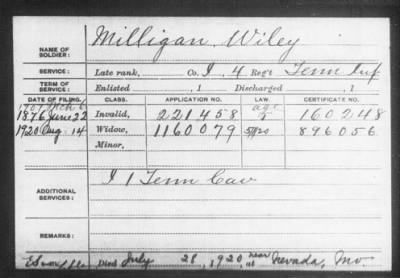 NAME OF SOLDIER: Milligan, Wiley
SERVICE: Late rank, Co. I, 4 Reg't Tenn Inf
TERM OF SERVICE: Enlisted , 1 Discharged , 1
DATE OF FILING. CLASS. APPLICATION NO. LAW. CERTIFICATE NO.
1907 Mch 6
1876 June 22 Invalid, 221458 160248
1920 Aug. 14 Widow, 1160079 896056
Minor,
ADDITIONAL SERVICES: I 1 Tenn Cav
REMARKS:
Died July 28, 1920, near at Nevada, Mo.